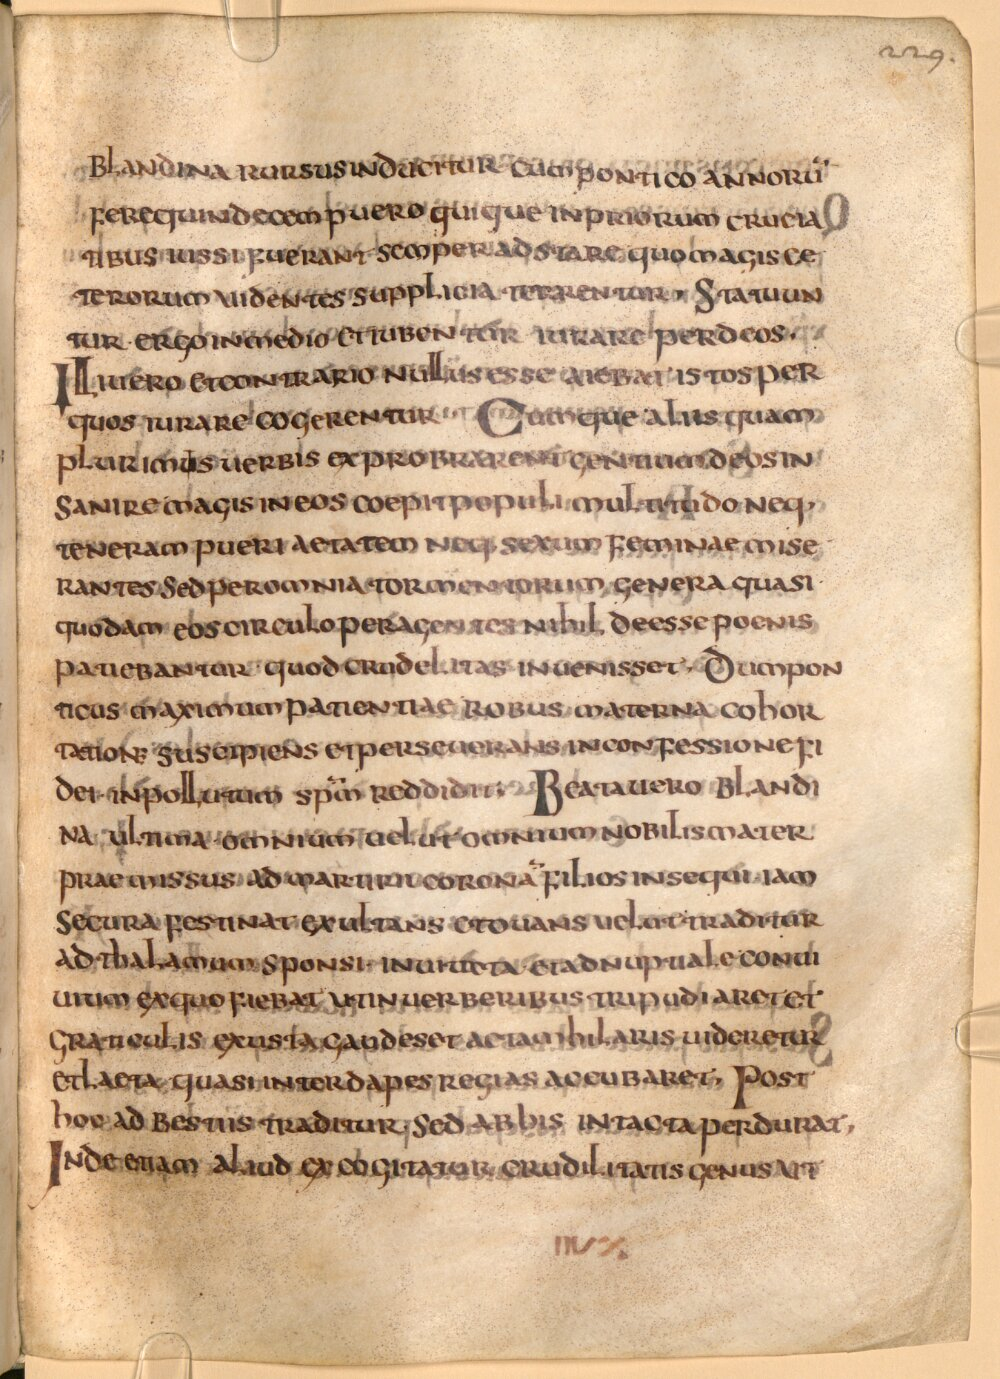 229.
Blandina rursus inducitur cum pontico annorū
fere quindecem puero qui que in priorum crucia
tibus iussi fuerant semper adstare quo magis ce
terorum uidentes supplicia terrentur, Statuun
tur ergo in medio et iuben tur iurare per deos.
Illi uero et contrario nullus esse aiebat istos per
quos iurare cogerentur Cum que aliis quam
plurimis uerbis exprobrarent gentium deos in
sanire magis in eos coepit populi multitudo neq,
teneram pueri aetatem neq, sexum feminae mise
rantes sed per omnia tormentorum genera quasi
quodam eos circulo peragentes nihil deesse poenis
patiebantur quod crudelitas inuenisset, Dum pon
ticus maximum patientiae robus materna cohor
tatione suscipiens et perseuerans in confessione fi
dei inpollutum sp̄m reddidit, Beata uero blandi
na ultima omnium uelut omnium nobilis mater
praemissus ad martirii coronā filios insequi iam
secura festinat exultans et ouans uelut traditur
ad thalamum sponsi inuiteta et ad nuptiale conui
uium ex quo fiebat ut in uerberibus tripudiaret et
graticulis exusta gaudes et aetam hilaris uideretur
et laeta quasi inter dapes regias accubaret, Post
hoc ad bestiis traditur, sed ab his intacta perdurat,
Inde etiam aliud excogitatur crudilitatis genus ait